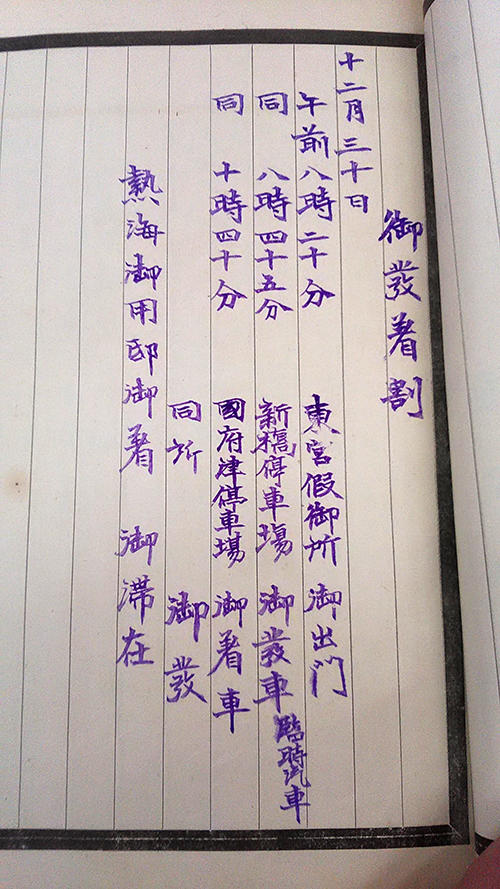 御發着割
十二月三十日
午前八時二十分 東宮假御所 御出門
同 八時四十五分 新橋停車場 御發車 臨時汽車
同 十時四十分 國府津停車場 御着車
同所 御發
熱海御用邸御着 御滞在